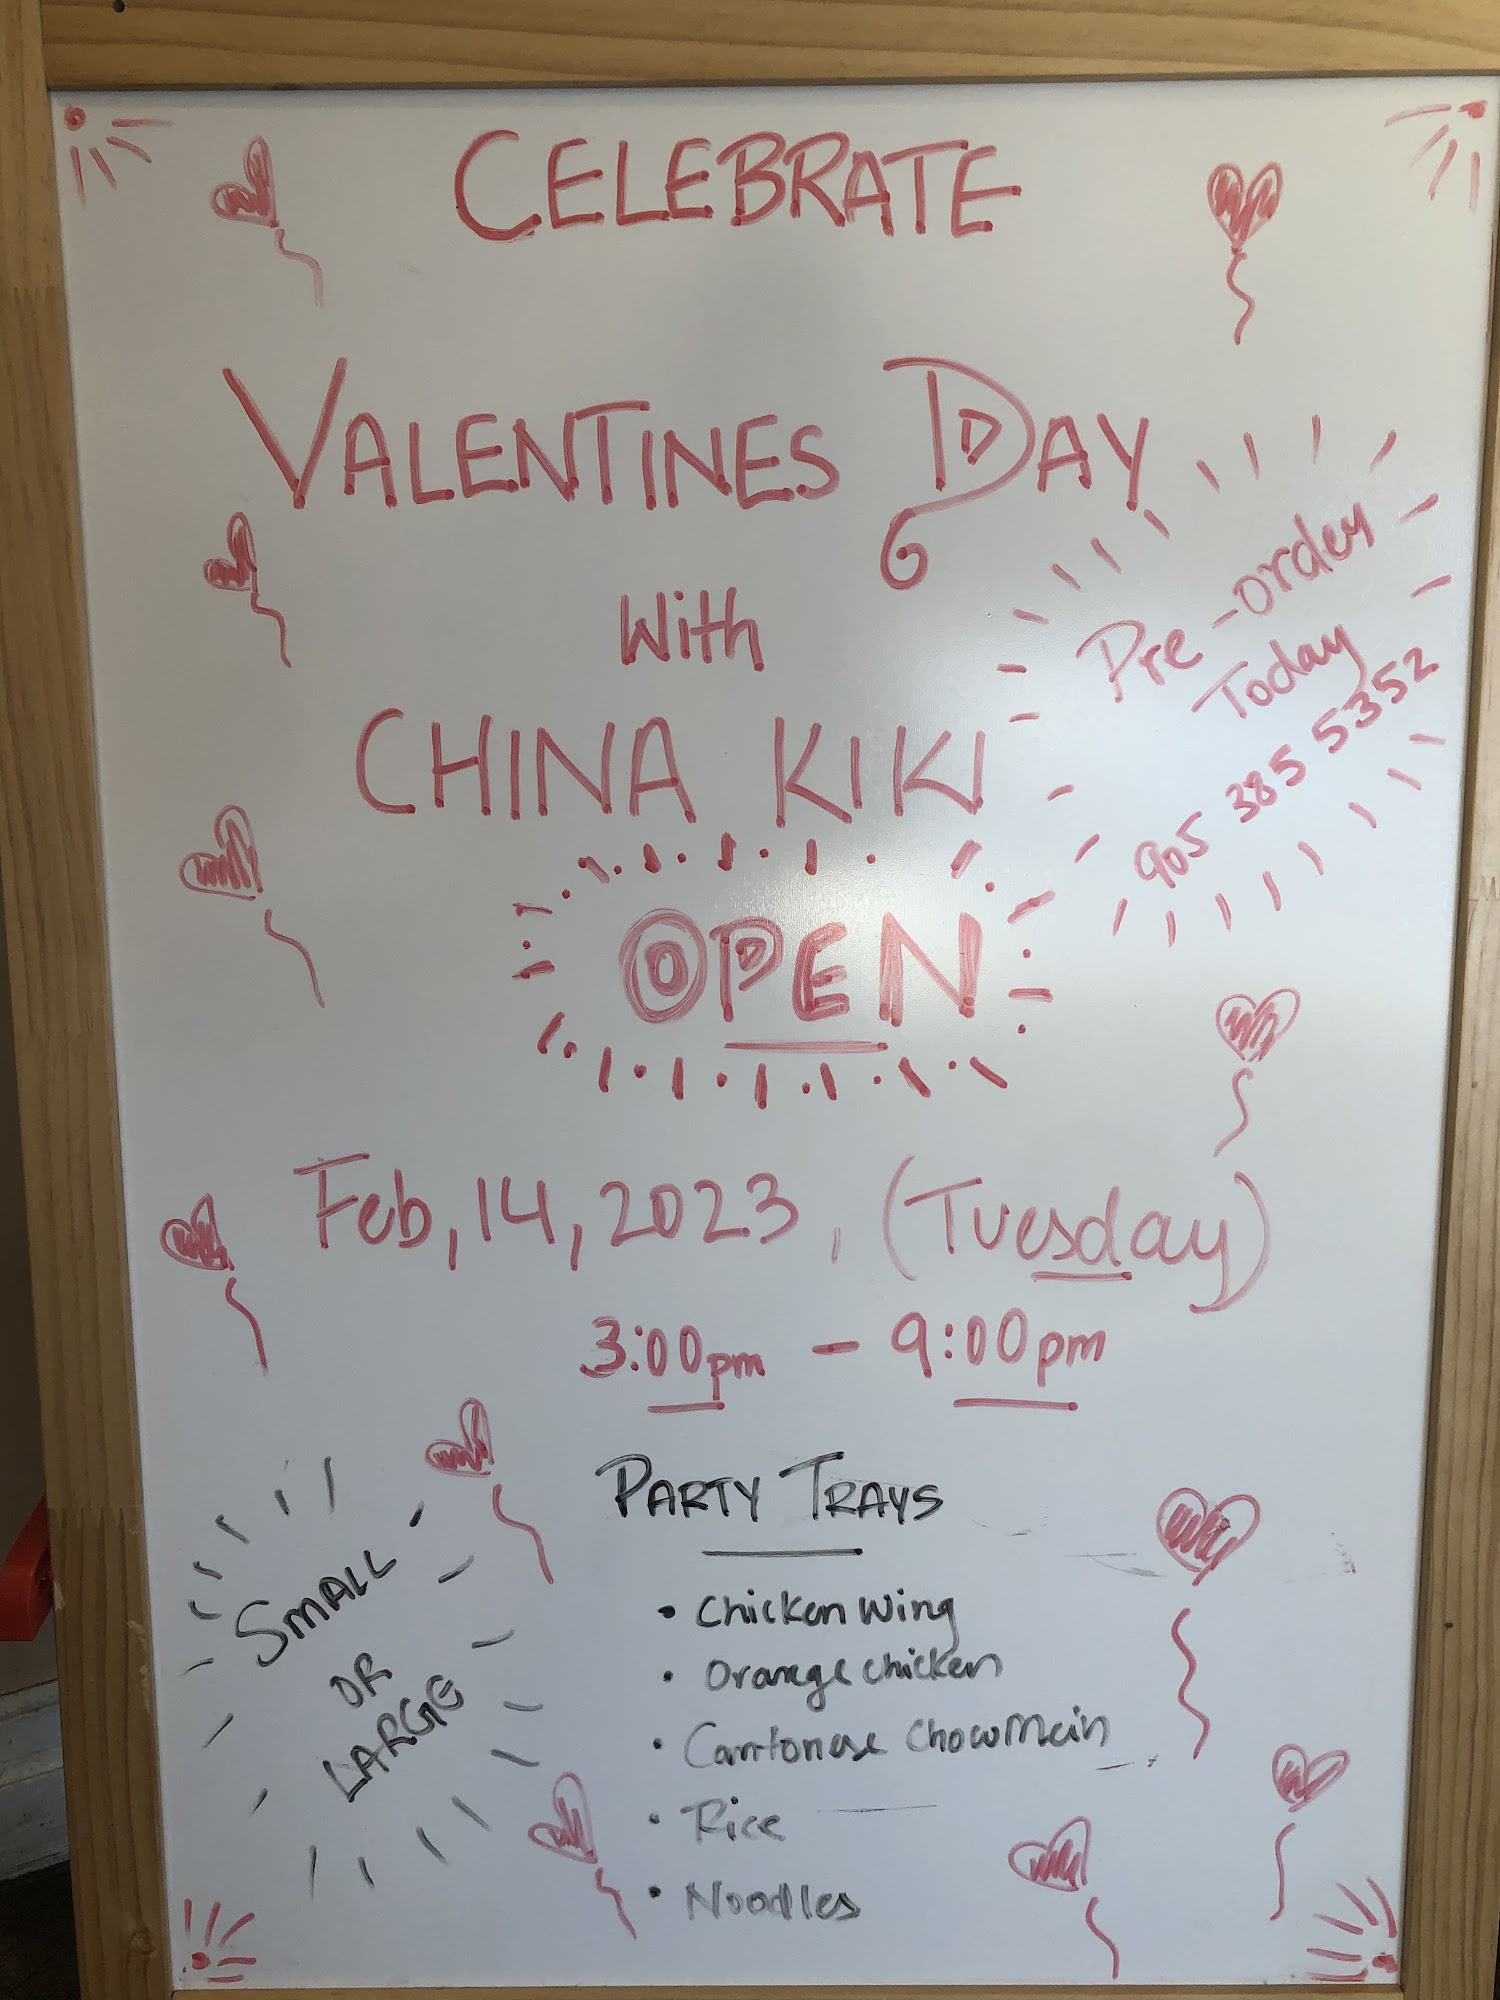 CELEBRATE
VALENTINES DAY
With
CHINA KIKI
Pre-order
Today
905 385 5352
OPEN
Feb, 14, 2023, (Tuesday)
3:00pm - 9:00pm
PARTY TRAYS
SMALL
OR
LARGE
• Chicken Wing
• Orange chicken
• Cantonese ChowMein
• Rice
• Noodles